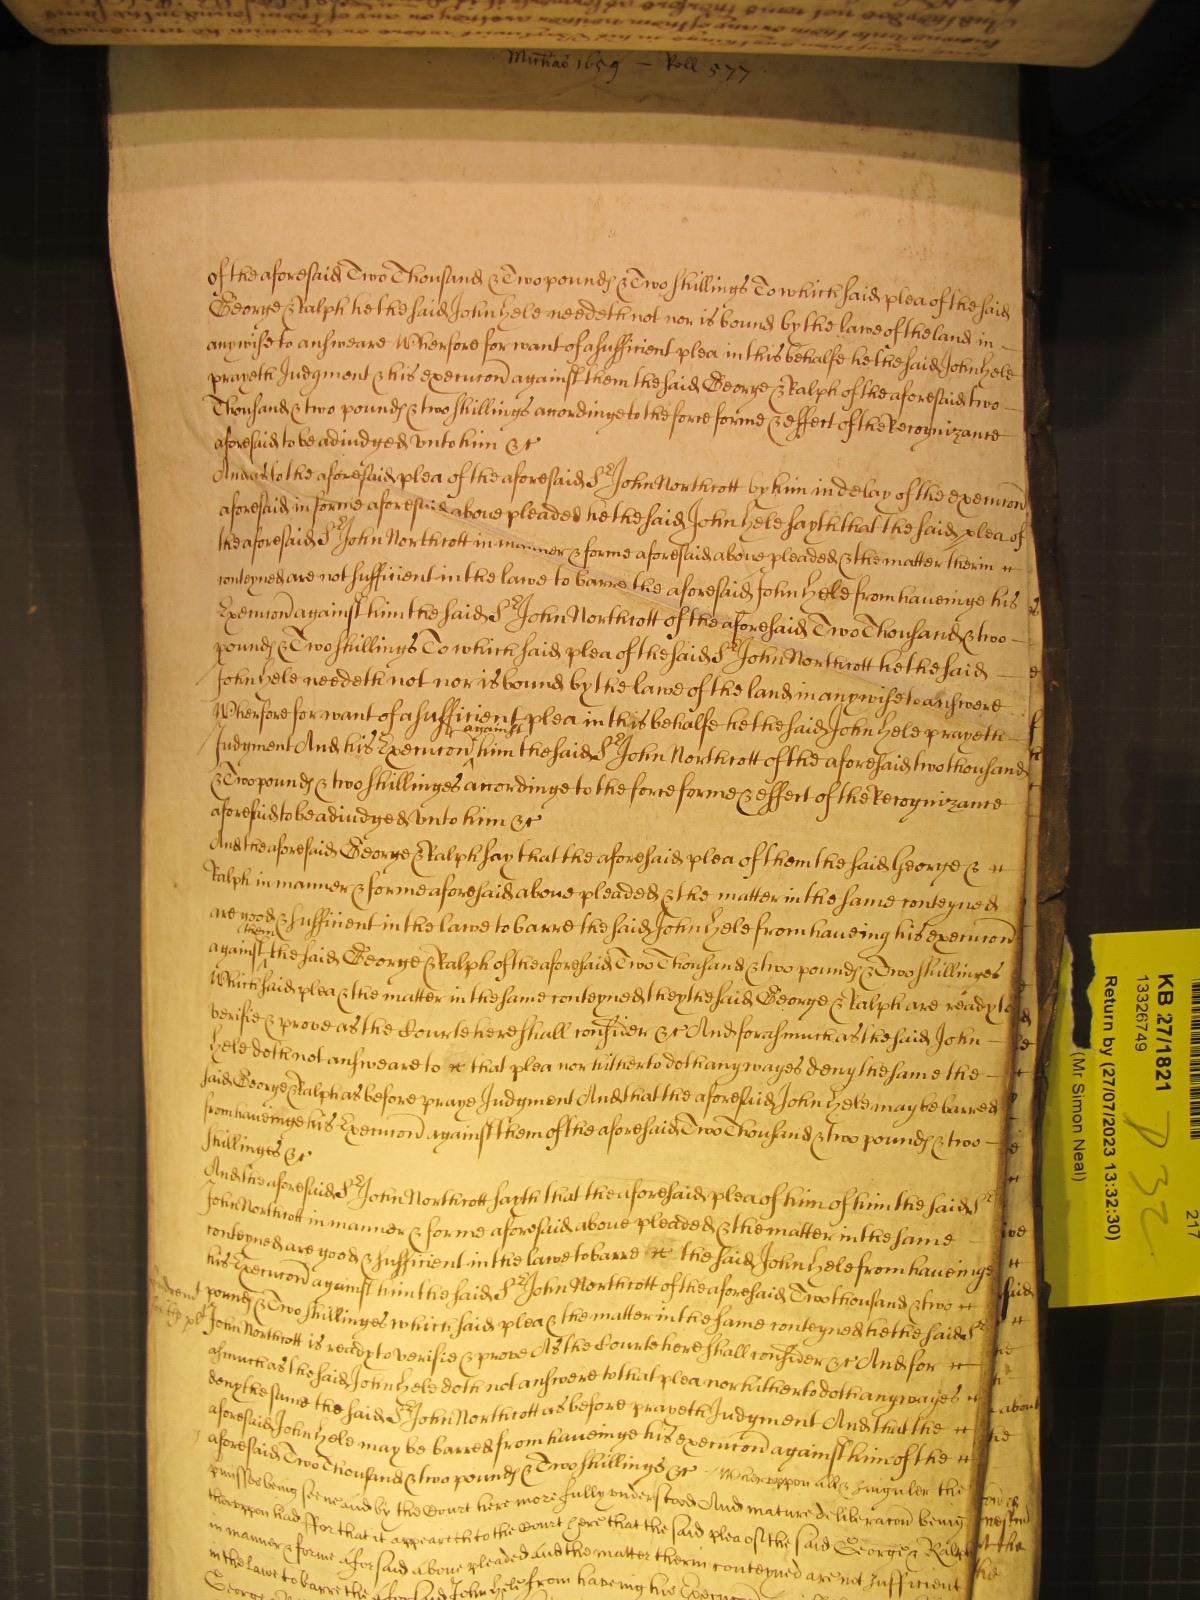 Michas 1659 — Roll 577
of the aforesaid Two Thousand & Two pounds & Two shillings To which said plea of the said
George & Ralph he the said John Hele needeth not nor is bound by the lawe of the land in
any wise to answeare Wherfore for want of a sufficient plea in this behalfe he the said John Hele
prayeth Judgment & his execucon against them the said George & Ralph of the aforesaid two
Thousand & two pounds & two shillings accordinge to the force forme & effect of the Recognizance
aforesaid to be adiudged unto him &c
And as to the aforesaid plea of the aforesaid Sr John Northcott by him in delay of the execucon
aforesaid in forme aforesaid aboue pleaded he the said John Hele sayth that the said plea of
the aforesaid Sr John Northcott in manner & forme aforesaid aboue pleaded & the matter therin
conteyned are not sufficient in the lawe to barre the aforesaid John Hele from haueinge his
Execucon against him the said Sr John Northcott of the aforesaid Two Thousand & two
pounds & Two shillings To which said plea of the said Sr John Northcott he the said
John Hele needeth not nor is bound by the lawe of the land in any wise to answere
Wherfore for want of a sufficient plea in this behalfe he the said John Hele prayeth
against
Judgment And his Execucon him the said Sr John Northcott of the aforesaid two thousand
& Two pounds & two shillinges accordinge to the force forme & effect of the Recognizance
aforesaid to be adiudged unto him &c
And the aforesaid George & Ralph say that the aforesaid plea of them the said George &
Ralph in manner & forme aforesaid aboue pleaded & the matter in the same conteyned
are good & sufficient in the lawe to barre the said John Hele from haueing his execucon
them
against the said George & Ralph of the aforesaid Two Thousand & two pounds & Two shillinges
Which said plea & the matter in the same conteyned they the said George & Ralph are ready to
verifie & prove as the Courte here shall consider &c And forasmuch as the said John
Hele doth not answeare to that plea nor hitherto doth any wayes deny the same the
said George & Ralph as before praye Judgment And that the aforesaid John Hele may be barred
from haueinge his Execucon against them of the aforesaid Two Thousand & two pounds & two
shillinges &c
And the aforesaid Sr John Northcott sayth that the aforesaid plea of him of him the said Sr
John Northcott in manner & forme aforesaid aboue pleaded & the matter in the same
conteyned are good & sufficient in the lawe to barre the said John Hele from haueinge
his Execucon against him the said Sr John Northcott of the aforesaid Two thousand & two
pounds & Two shillinges which said plea & the matter in the same conteyned he the said Sr
John Northcott is ready to verifie & prove As the Courte here shall consider &c And for
asmuch as the said John Hele doth not answere to that plea nor hitherto doth any wayes
deny the same the said Sr John Northcott as before prayeth Judgment And that the
aforesaid John Hele may be barred from haueinge his execucon against him of the
aforesaid Two Thousand & two pounds & Two shillings &c Whereuppon all & singuler the
pmisses being seene and by the Court here more fully understood And mature deliberacon being
thereuppon had ffor that it appeareth to the Court here that the said plea of the said George & Ralph
in manner & forme aforsaid aboue pleaded and the matter therin conteyned are not sufficient
in the lawe to barre the aforesaid John Hele from haveing his Execucon
George
KB 27/1821
13326749
Return by (27/07/2023 13:32:30)
(Mr Simon Neal)
217